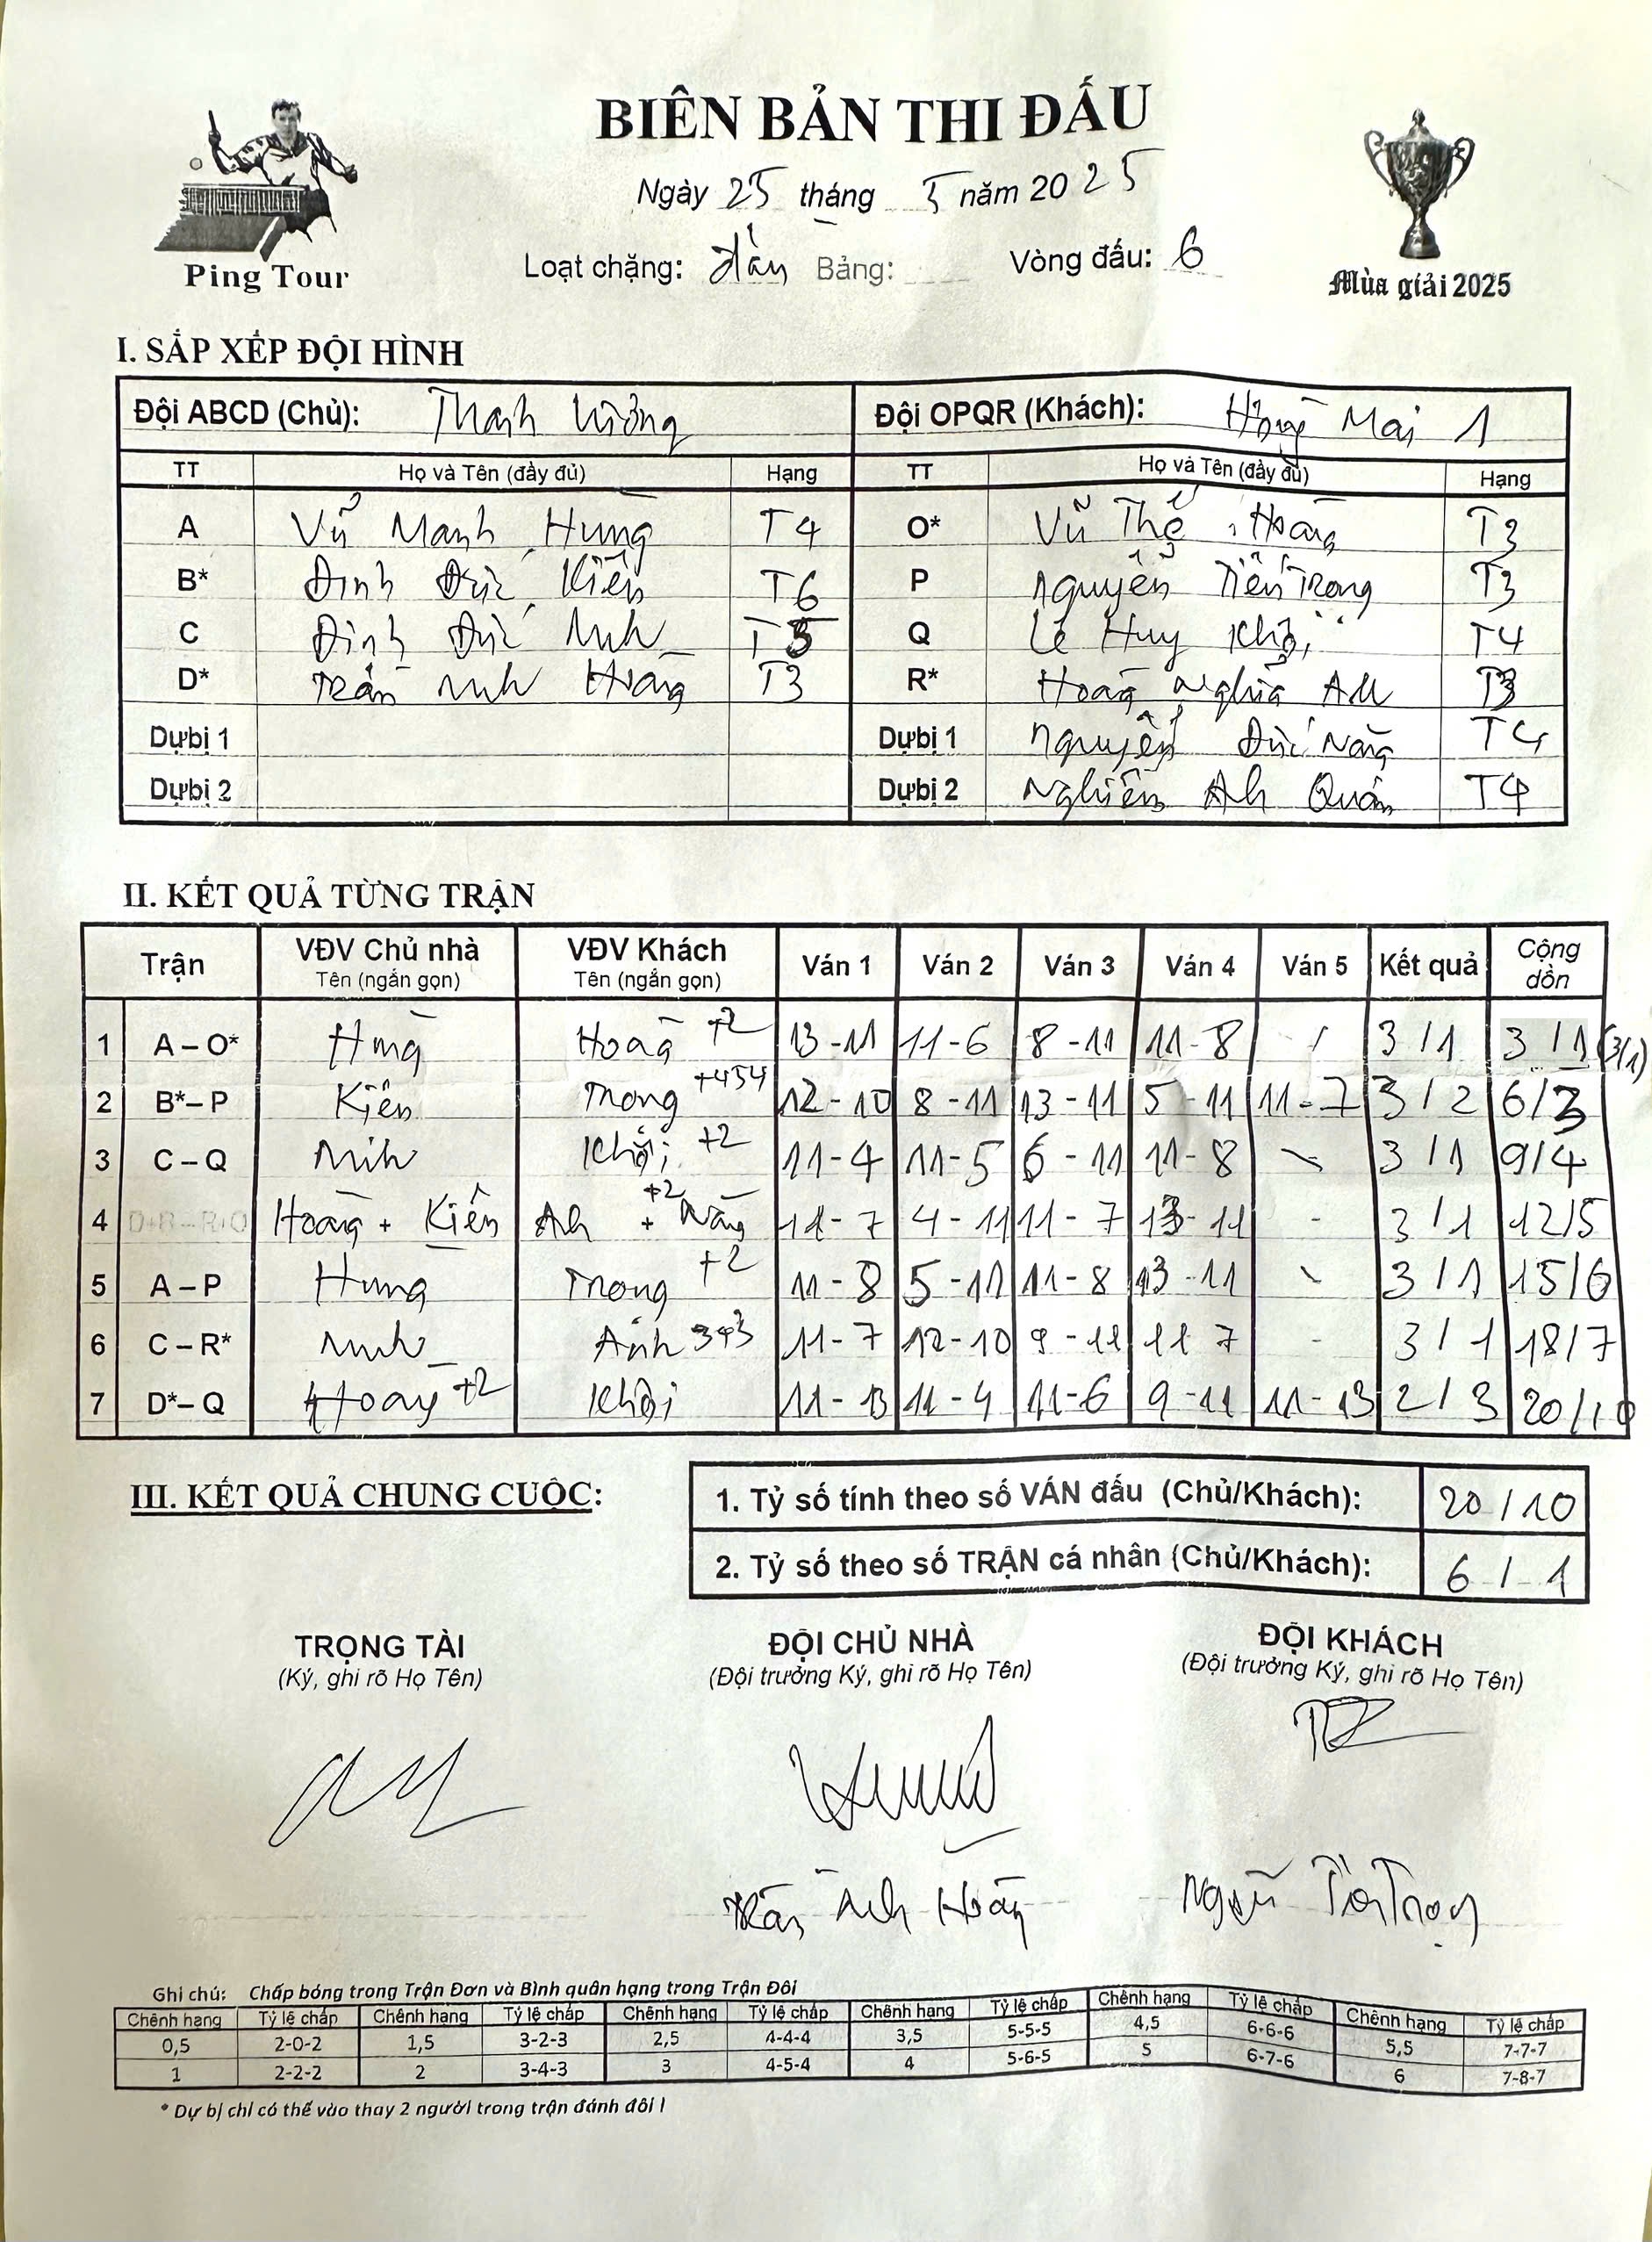 BIÊN BẢN THI ĐẤU
Ngày 25 tháng 5 năm 20 25
Loạt chặng: Bảng: Vòng đấu: 6
Ping Tour
Mùa giải 2025
I. SẮP XẾP ĐỘI HÌNH
Đội ABCD (Chủ): Thanh Đội OPQR (Khách): Hoàng Mai 1
TT Họ và Tên (đầy đủ) Hạng TT Họ và Tên (đầy đủ) Hạng
A Vũ Mạnh Hùng T4 O* Vũ Thế Hoàng T3
B* Đinh Đức Kiên T6 P Nguyễn Tiến Trọng T3
C Đinh Đức Minh T5 Q Lê Huy Khôi T4
D* Trần Anh Hoàng T3 R* Hoàng Nghĩa Anh T3
Dự bị 1 Dự bị 1 Nguyễn Đức Năng T4
Dự bị 2 Dự bị 2 Nghiêm Anh Quân T4
II. KẾT QUẢ TỪNG TRẬN
Trận VĐV Chủ nhà Tên (ngắn gọn) VĐV Khách Tên (ngắn gọn) Ván 1 Ván 2 Ván 3 Ván 4 Ván 5 Kết quả Cộng dồn
1 A – O* Hùng Hoàng +2 13 - 11 11 - 6 8 - 11 11 - 8 / 3 / 1 3 / 1 (3/1)
2 B* – P Kiên Trọng +454 12 - 10 8 - 11 13 - 11 5 - 11 11 - 7 3 / 2 6/3
3 C – Q Minh Khôi +2 11 - 4 11 - 5 6 - 11 11 - 8 \ 3 / 1 9/4
4 D+B – R+O Hoàng + Kiên Anh + Năng +2 11 - 7 4 - 11 11 - 7 13 - 11 - 3 / 1 12/5
5 A – P Hùng Trọng +2 11 - 8 5 - 11 11 - 8 13 - 11 \ 3 / 1 15/6
6 C – R* Minh Anh 3+3 11 - 7 12 - 10 9 - 11 11 7 - 3 / 1 18/7
7 D* – Q Hoàng +2 Khôi 11 - 13 11 - 4 11 - 6 9 - 11 11 - 13 2 / 3 20/10
III. KẾT QUẢ CHUNG CUỘC:
1. Tỷ số tính theo số VÁN đấu (Chủ/Khách): 20 / 10
2. Tỷ số theo số TRẬN cá nhân (Chủ/Khách): 6 / 1
TRỌNG TÀI ĐỘI CHỦ NHÀ ĐỘI KHÁCH
(Ký, ghi rõ Họ Tên) (Đội trưởng Ký, ghi rõ Họ Tên) (Đội trưởng Ký, ghi rõ Họ Tên)
Trần Anh Hoàng Nguyễn Tiến Trọng
Ghi chú: Chấp bóng trong Trận Đơn và Bình quân hạng trong Trận Đôi
Chênh hạng Tỷ lệ chấp Chênh hạng Tỷ lệ chấp Chênh hạng Tỷ lệ chấp Chênh hạng Tỷ lệ chấp Chênh hạng Tỷ lệ chấp Chênh hạng Tỷ lệ chấp
0,5 2-0-2 1,5 3-2-3 2,5 4-4-4 3,5 5-5-5 4,5 6-6-6 5,5 7-7-7
1 2-2-2 2 3-4-3 3 4-5-4 4 5-6-5 5 6-7-6 6 7-8-7
* Dự bị chỉ có thể vào thay 2 người trong trận đánh đôi !